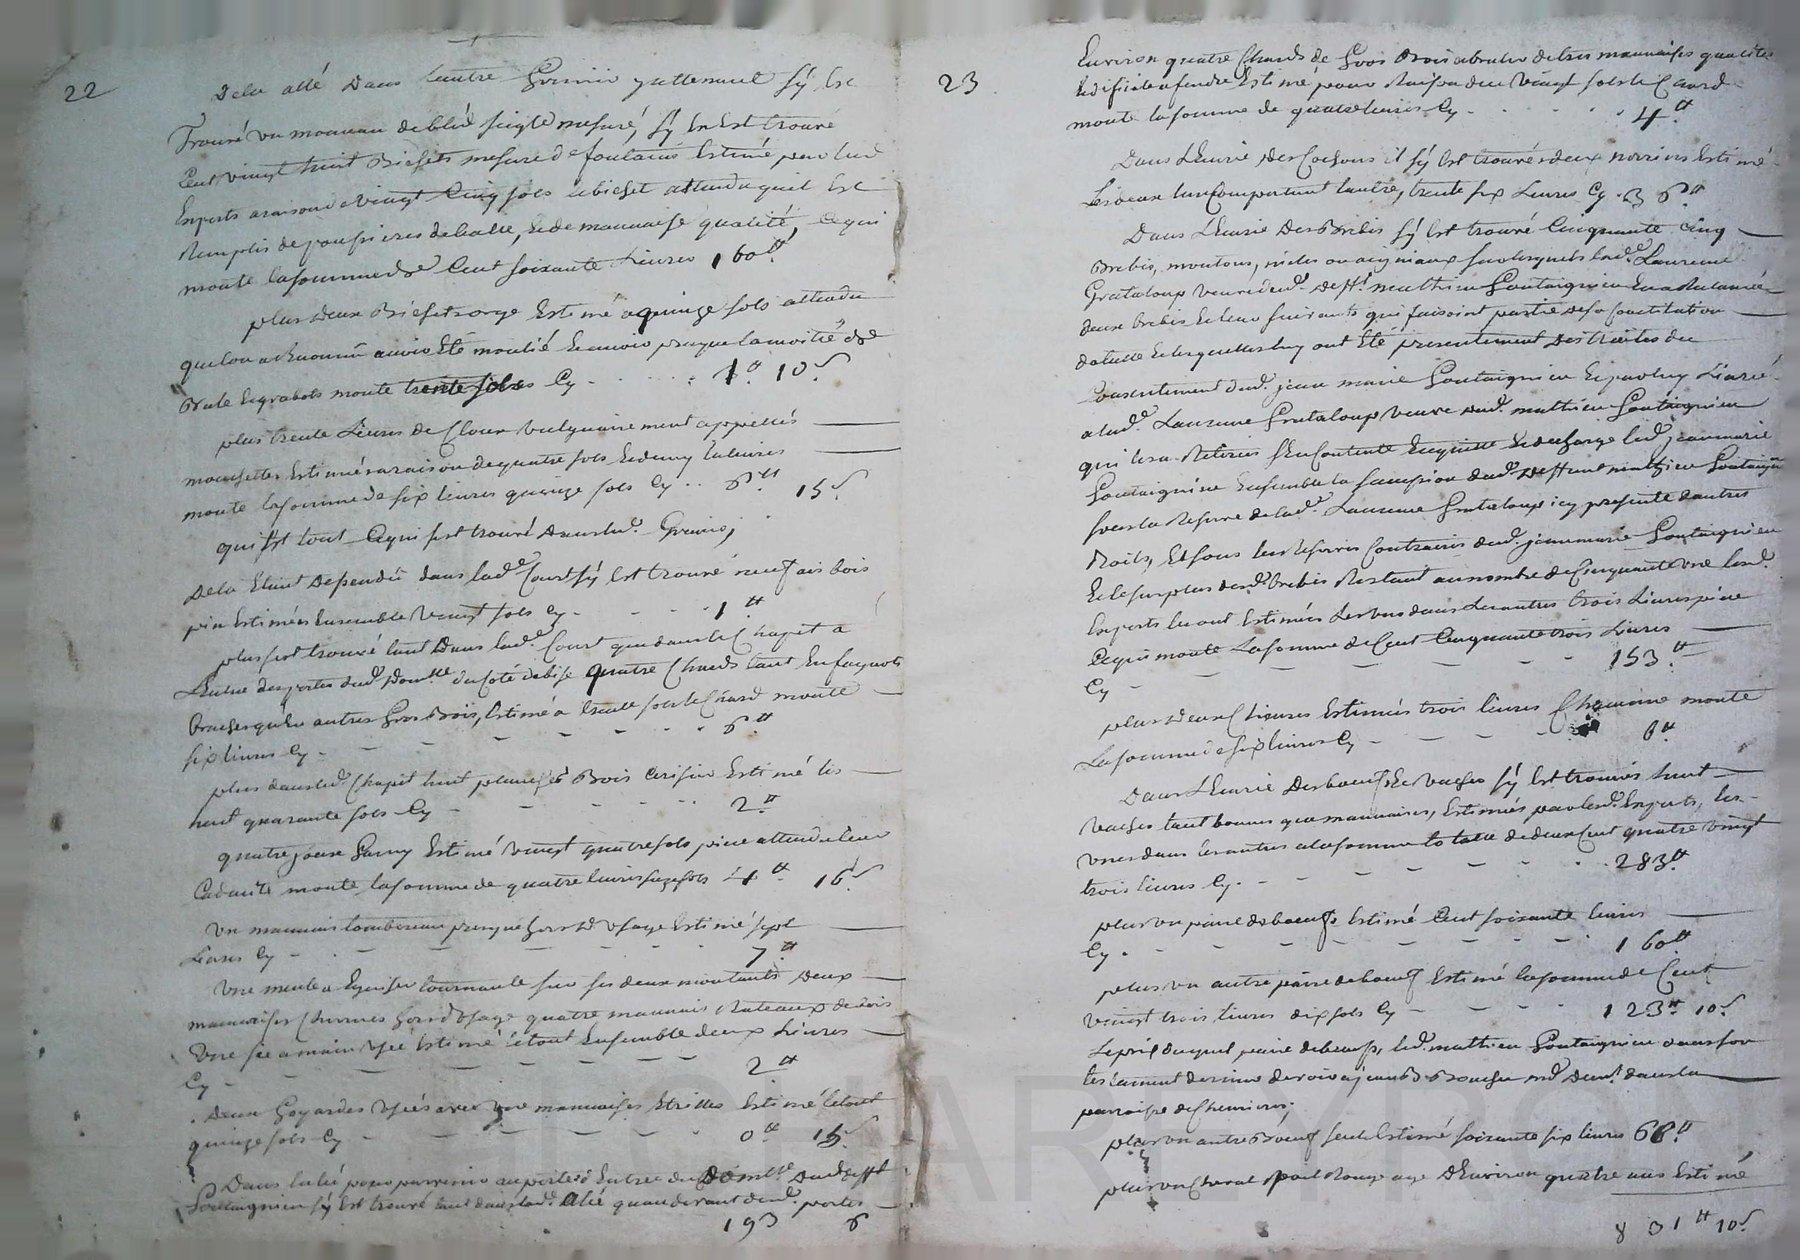 22
Dela allé Dans lautre Grenier y attenant sÿ Est
Trouvé un monceau de bled seigle mesuré, sÿ En Est trouvé
Cent vingt huit Bichets mesure de foulains Estimé par lesd
Experts araison de vingt Cinq sols le bichet attendu quil Est
Remplis de poussieres de balle, Et de mauvaise qualité, Ce qui
monte lasomme de Cent soixante Livres 160.tt
plus Deux Bichets orge Estimé a quinze sols attendu
quelon a Reconnu avoir Eté mouilé
Bale Et grabots monte trente sols Cy - . . . . 1.tt 10.s
plus trente Livres de Cloux vulgairement appellés
mouchettes Estimés araison de quatre sols Et demy la livre
monte lasomme de six livres quinze sols Cy . . 6tt 15.s
qui Est tout Ce qui sest trouvé Dans led. Grenier,
Dela Etant Dessendu dans lad.e Court sÿ Est trouvé neuf ais bois
pin Estimées Ensemble vingt sols Cy - - - - 1tt
plus sest trouvé tant Dans lad.e Court que dans le Chapit a
L'Entrée des portes dud. Dom.lle du Coté debise quatre Chards tant En fagnots
autres Gros Bois, Estimé a trente sols le Chard monte
six livres Cy - - - - - - . . 6.tt
plus dans led. Chapit huit planches Bois Cerisier Estimé les
huit quarante sols Cy - - - - . . 2.tt
quatre joux Garny Estimé vingt quatre sols piece attendu leur
Caducité monte lasomme de quatre livres seize sols 4tt. 16.s
Un mauvais tombereau presque hors d'usage Estimé sept
Livres Cy - . - - - - - . 7.tt
Une meule a Eguiser tournante sur ses deux montants Deux
mauvaises Charrues hors d'usage quatre mauvais Rateaux de bois
Une sie a main usée Estimé le tout Ensemble deux Livres
Cy - - - - - - - 2tt
. Deux Goyardes usées avec une mauvaises Etrilles Estimé le tout
quinze sols Cy - - - - - - . 0tt 15.s
Dans la lé pour parvenir au portes d'Entrée du Dom.lle Dud. deft
Goutaignieu sÿ Est trouvé tant dans lad. allé quau devant desd. portes
193 6
23
Environ quatre Chards de Gros Bois abruler de tres mauvaises qualités
Et dificile afendre Estimé pour Raison de vingt sols le Chard
monte lasomme de quatre livres Cy - . . . . 4.tt
Dans L'Eurie des Cochons il sÿ Est trouvé deux nurrins Estimé
Les deux lun Comportant lautre, trente six Livres Cy . 36.tt
Dans L'Eurie Des Brebis sÿ Est trouvé Cinquante Cinq
Brebis, moutons, ou agneaux sur lesquels lad.e Laurence
Grataloup veuve dud. deff.t mathieu Goutaignieu En a Reclamée
deux brebis Et leur suivants qui faisoint partie de sa Constitution
dotalle Et lesquelles luy ont Eté presentement Destraites du
Consentement dud. jean marie Goutaignieu Et par luy Livré
a lad.e Laurence Grataloup veuve dud. mathieu Goutaignieu
qui les a Retirées s'En Contente En quitte Et decharge led. jean marie
Goutaignieu Ensemble la sucession dud. Deffunt mathieu Goutaignieu
sous la Reserve delad.e Laurence Grataloup icy presente dautres
Droits, Et sous les Reserves Contraires dud. jean marie Goutaignieu
Et le surplus desd. brebis Restant au nombre de Cinquante une lesd.
Experts les ont Estimées Les unes dans Les autres trois Livres piece
Ce qui monte Lasomme de Cent Cinquante trois Livres
Cy - - - - - - - - 153.tt
plus Deux Chevres Estimées trois livres Chacune monte
La somme de six livres Cy - - - - - 6.tt
Dans L'Eurie Des boeufs Et vaches sÿ Est trouvés huit
vaches tant bonnes que mauvaises, Estimées par lesd. Experts, les
unes dans les autres a la somme to talle de deux Cent quatre vingt
trois livres Cy . - - - - - . . 283.tt
plus un paire de boeufs Estimé Cent soixante livres
Cy . - - - - - - - . 160.tt
plus un autre paire de boeuf Estimé lasomme de Cent
vingt trois livres dix sols Cy - - - . 123.tt 10.s
Le prix duquel paire de boeufs, led. mathieu Goutaignieu dans son
testament dernier devoir a jean B. Boucher m.d Dem.t dans la
parroisse de Chenieres;
plus un autre Boeuf seul Estimé soixante six livres 66.tt
plus un Cheval Poil Rouge age D'Environ quatre ans Estimé
831tt 10.s